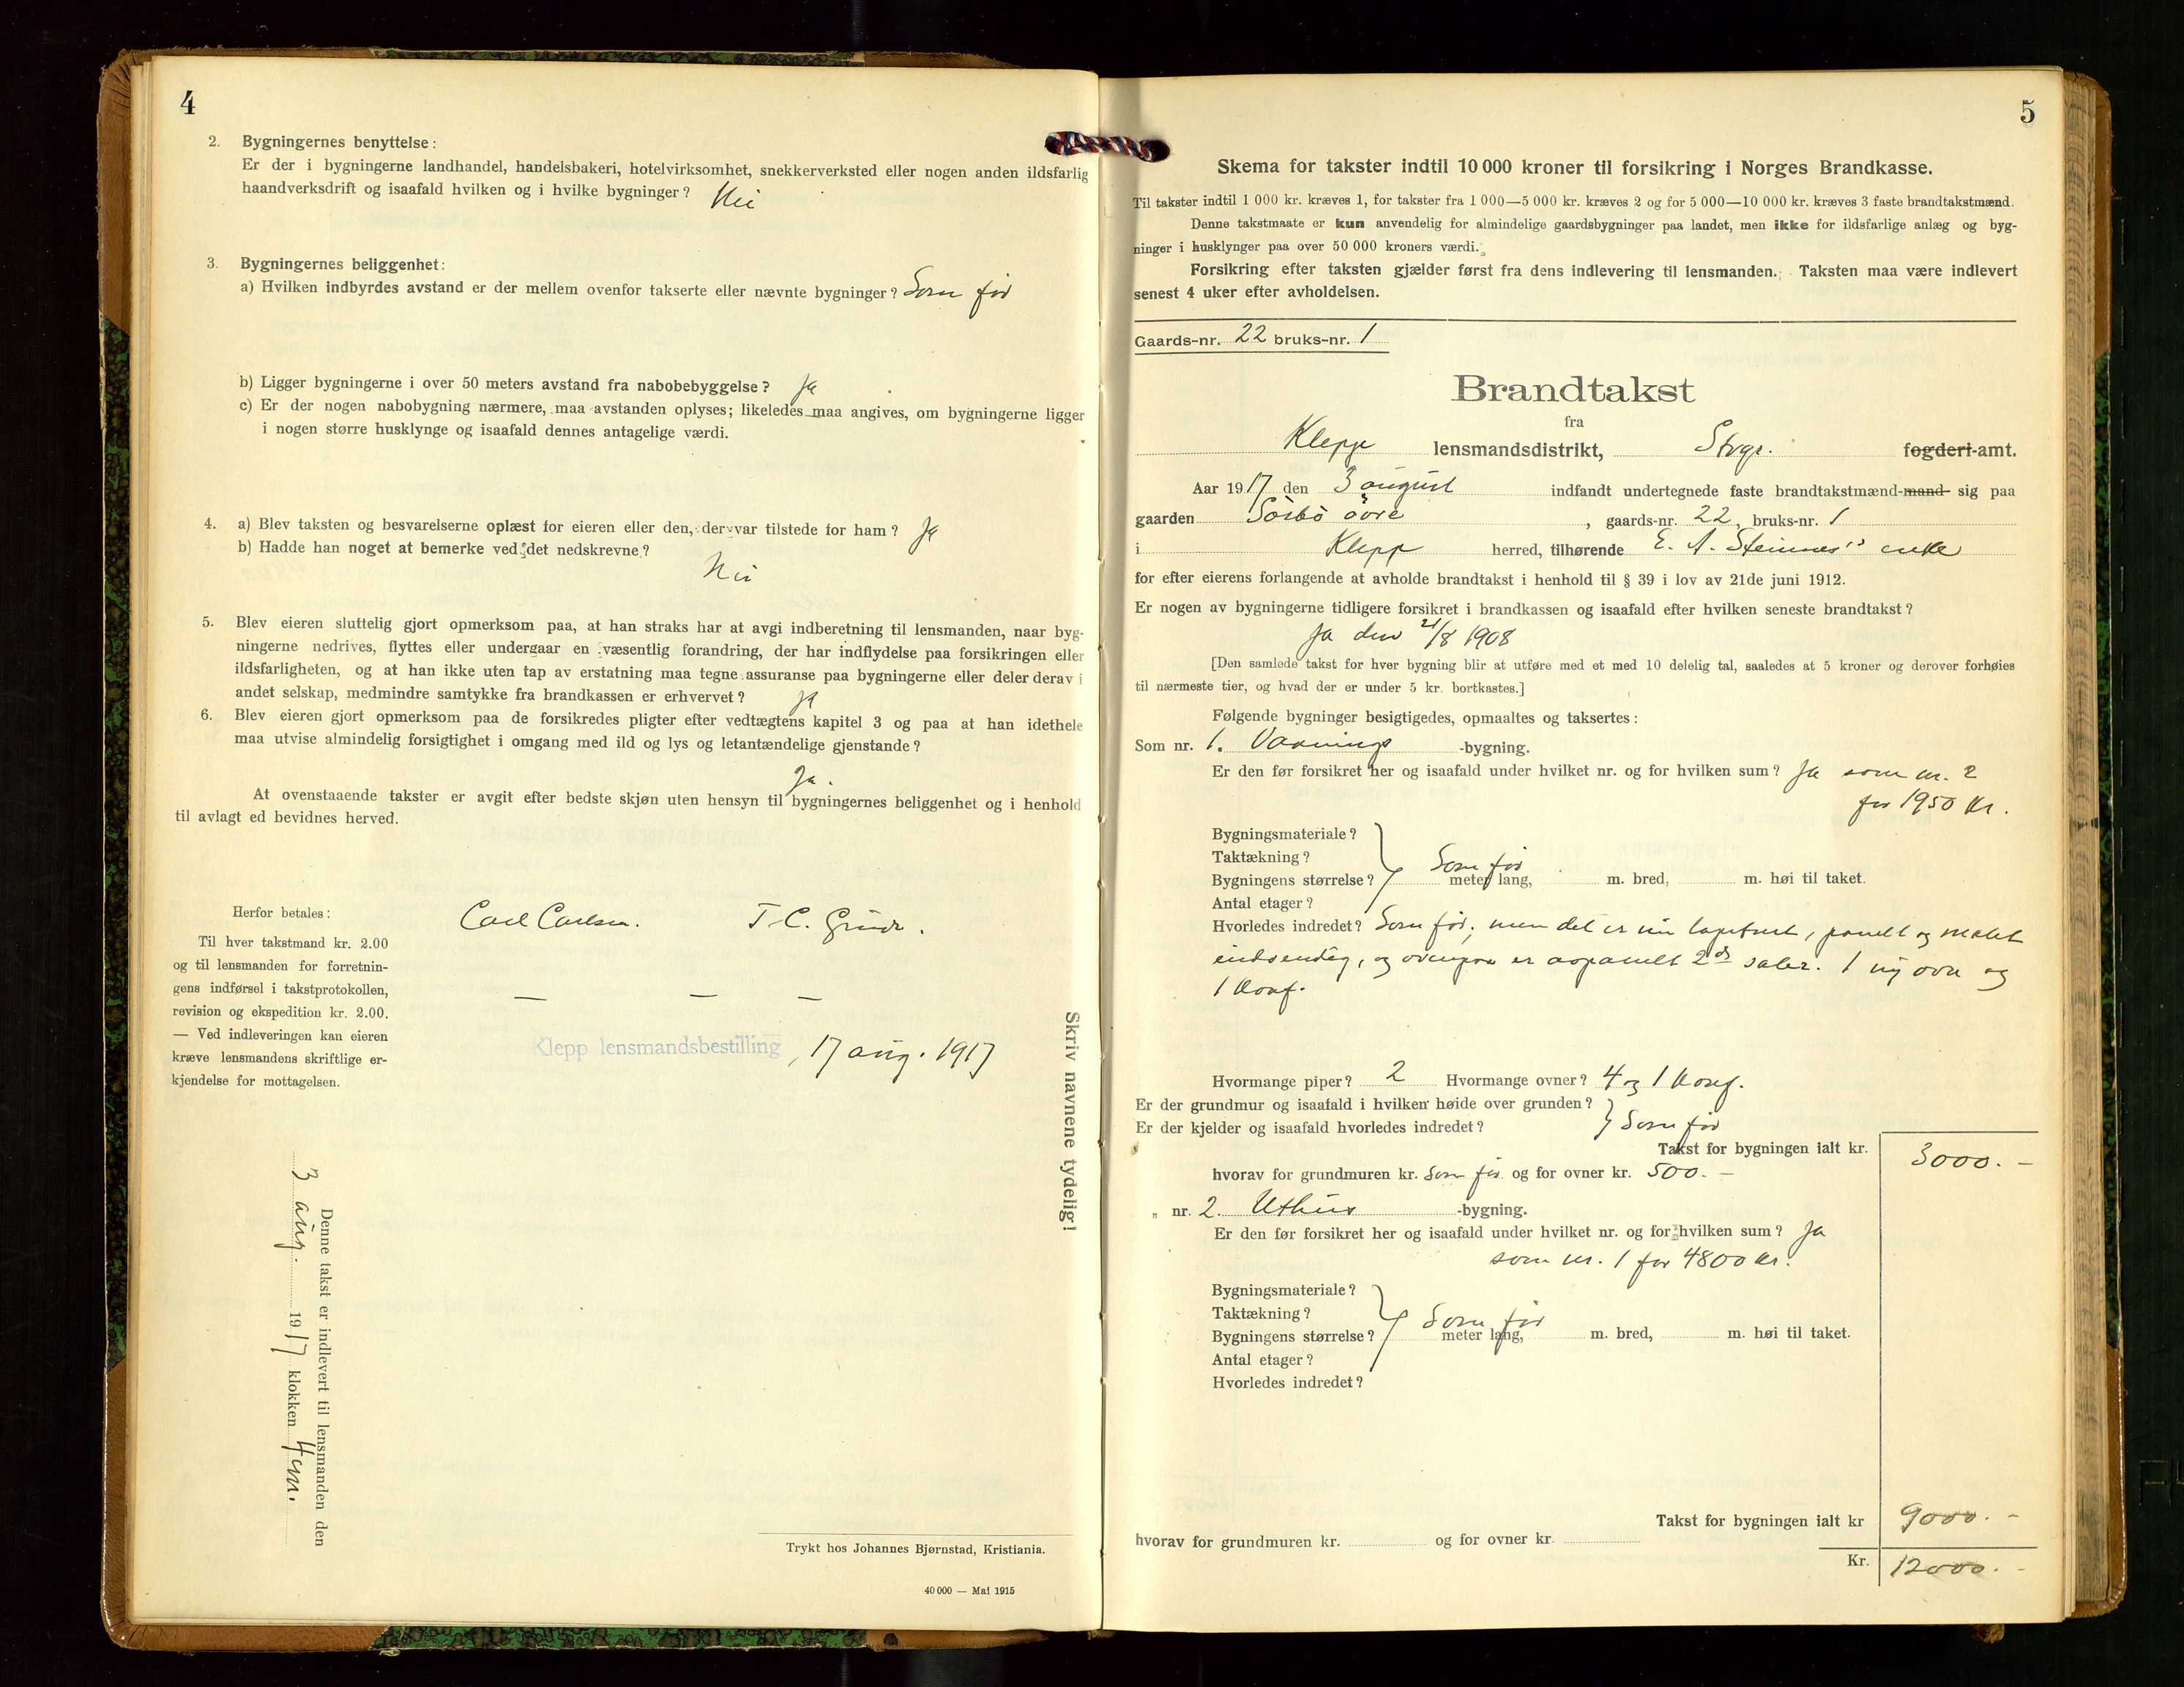 4
2. Bygningernes benyttelse:
Er der i bygningerne landhandel, handelsbakeri, hotelvirksomhet, snekkerverksted eller nogen anden ildsfarlig
haandverksdrift og isaafald hvilken og i hvilke bygninger? Nei
3. Bygningernes beliggenhet:
a) Hvilken indbyrdes avstand er der mellem ovenfor takserte eller nævnte bygninger? Som før
b) Ligger bygningerne i over 50 meters avstand fra nabobebyggelse? Ja
c) Er der nogen nabobygning nærmere, maa avstanden oplyses; likeledes maa angives, om bygningerne ligger
i nogen større husklynge og isaafald dennes antagelige værdi.
4. a) Blev taksten og besvarelserne oplæst for eieren eller den, der var tilstede for ham? Ja
b) Hadde han noget at bemerke ved det nedskrevne?
Nei
5. Blev eieren sluttelig gjort opmerksom paa, at han straks har at avgi indberetning til lensmanden, naar byg-
ningerne nedrives, flyttes eller undergaar en væsentlig forandring, der har indflydelse paa forsikringen eller
ildsfarligheten, og at han ikke uten tap av erstatning maa tegne assuranse paa bygningerne eller deler derav i
andet selskap, medmindre samtykke fra brandkassen er erhvervet? Ja
6. Blev eieren gjort opmerksom paa de forsikredes pligter efter vedtægtens kapitel 3 og paa at han idethele
maa utvise almindelig forsigtighet i omgang med ild og lys og letantændelige gjenstande?
Ja.
At ovenstaaende takster er avgit efter bedste skjøn uten hensyn til bygningernes beliggenhet og i henhold
til avlagt ed bevidnes herved.
Herfor betales:
Til hver takstmand kr. 2.00
og til lensmanden for forretnin-
gens indførsel i takstprotokollen,
revision og ekspedition kr. 2.00.
— Ved indleveringen kan eieren
kræve lensmandens skriftlige er-
kjendelse for mottagelsen.
Carl Carlsen. T. C. Grude.
— — —
Klepp lensmandsbestilling, 17 aug. 1917
Skriv navnene tydelig!
Denne takst er indlevert til lensmanden den
3 aug. 1917 klokken 4 em.
Trykt hos Johannes Bjørnstad, Kristiania.
40 000 — Mai 1915
5
Skema for takster indtil 10 000 kroner til forsikring i Norges Brandkasse.
Til takster indtil 1 000 kr. kræves 1, for takster fra 1 000—5 000 kr. kræves 2 og for 5 000—10 000 kr. kræves 3 faste brandtakstmænd.
Denne takstmaate er kun anvendelig for almindelige gaardsbygninger paa landet, men ikke for ildsfarlige anlæg og byg-
ninger i husklynger paa over 50 000 kroners værdi.
Forsikring efter taksten gjælder først fra dens indlevering til lensmanden. Taksten maa være indlevert
senest 4 uker efter avholdelsen.
Gaards-nr. 22 bruks-nr. 1
Brandtakst
fra
Klepp lensmandsdistrikt, Stvgr. fogderi-amt.
Aar 1917 den 3 august indfandt undertegnede faste brandtakstmænd-mand sig paa
gaarden Sørbø øvre, gaards-nr. 22, bruks-nr. 1
i Klepp herred, tilhørende E. A. Steinnes's enke
for efter eierens forlangende at avholde brandtakst i henhold til § 39 i lov av 21de juni 1912.
Er nogen av bygningerne tidligere forsikret i brandkassen og isaafald efter hvilken seneste brandtakst?
Ja den 21/8 1908
[Den samlede takst for hver bygning blir at utføre med et med 10 delelig tal, saaledes at 5 kroner og derover forhøies
til nærmeste tier, og hvad der er under 5 kr. bortkastes.]
Følgende bygninger besigtigedes, opmaaltes og taksertes:
Som nr. 1. Vaanings-bygning.
Er den før forsikret her og isaafald under hvilket nr. og for hvilken sum? Ja som nr. 2
for 1950 kr.
Bygningsmateriale?
Taktækning? Som før
Bygningens størrelse? meter lang, m. bred, m. høi til taket.
Antal etager?
Hvorledes indredet? Som før, men det er nu tapetsert, panelt og malet
indvendig, og ovenpaa er avpanelt 2de saler. 1 ny ovn og
1 komf.
Hvormange piper? 2 Hvormange ovner? 4 og 1 komf.
Er der grundmur og isaafald i hvilken høide over grunden?
Er der kjelder og isaafald hvorledes indredet? Som før
Takst for bygningen ialt kr. 3000. —
hvorav for grundmuren kr. som før og for ovner kr. 500. —
„ nr. 2. Uthus-bygning.
Er den før forsikret her og isaafald under hvilket nr. og for hvilken sum? Ja
som nr. 1 for 4800 kr.
Bygningsmateriale?
Taktækning? Som før
Bygningens størrelse? meter lang, m. bred, m. høi til taket.
Antal etager?
Hvorledes indredet?
Takst for bygningen ialt kr 9000. -
hvorav for grundmuren kr. og for ovner kr.
Kr. 12000. -